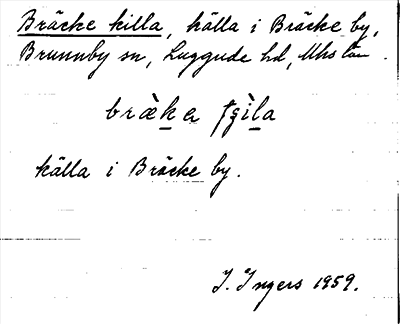 Bräcke killa, källa i Bräcke by,
Brunnby sn, Luggude hd, Mhs län.
källa i Bräcke by.
I. Ingers 1959.